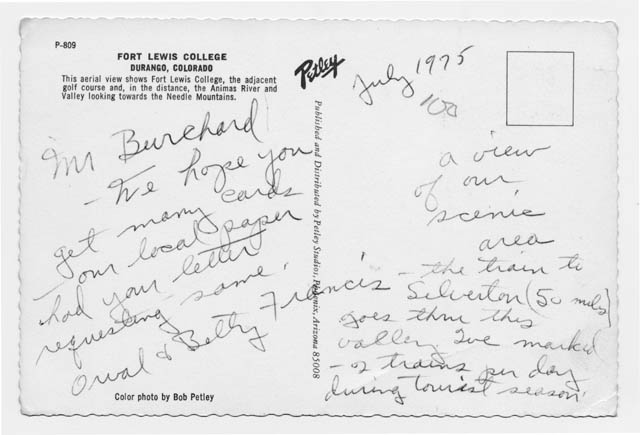 P-809
FORT LEWIS COLLEGE
DURANGO, COLORADO
This aerial view shows Fort Lewis College, the adjacent
golf course and, in the distance, the Animas River and
Valley looking towards the Needle Mountains.
Mr Burchard
- We hope you
get many cards
- our local paper
had your letter
requesting same.
Orval & Betty Francis
Color photo by Bob Petley
Petley
Published and Distributed by Petley Studios, Phoenix, Arizona 85008
July 1975
100
a view
of our
scenic
area
- the train to
Silverton (50 miles)
goes thru this
valley I've marked
- 2 trains per day
during tourist season.